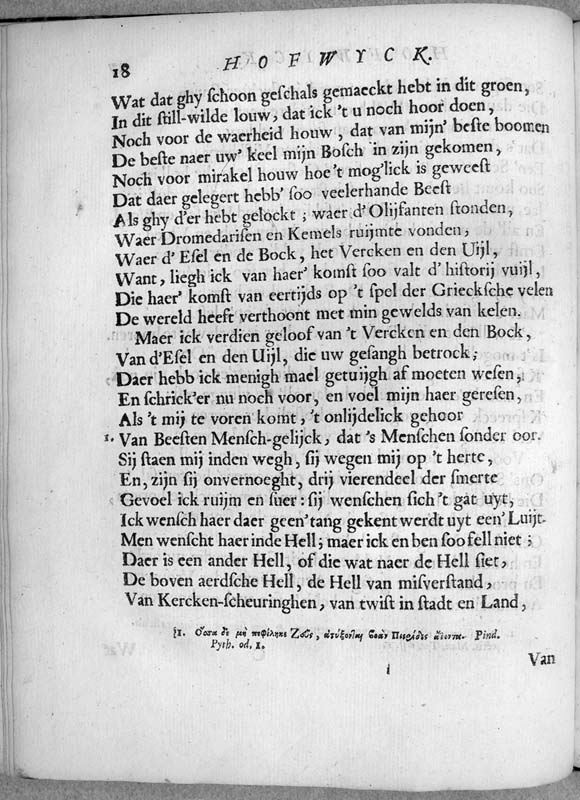 18
HOFWYCK.
Wat dat ghy schoon geschals gemaeckt hebt in dit groen,
In dit still-wilde louw, dat ick 't u noch hoor doen,
Noch voor de waerheid houw, dat van mijn' beste boomen
De beste naer uw' keel mijn Bosch in zijn gekomen,
Noch voor mirakel houw hoe't mog'lick is geweest
Dat daer gelegert hebb' soo veelerhande Beest
Als ghy d'er hebt gelockt; waer d'Olijfanten stonden,
Waer Dromedarisen en Kemels ruijmte vonden,
Waer d' Esel en de Bock, het Vercken en den Uijl,
Want, liegh ick van haer' komst soo valt d' historij vuijl,
Die haer' komst van eertijds op 't spel der Griecksche velen
De wereld heeft verthoont met min gewelds van kelen.
Maer ick verdien geloof van 't Vercken en den Bock,
Van d'Esel en den Uijl, die uw gesangh betrock;
Daer hebb ick menigh mael getuijgh af moeten wesen,
En schrick'er nu noch voor, en voel mijn haer geresen,
Als 't mij te voren komt, 't onlijdelick gehoor
1. Van Beesten Mensch-gelijck, dat 's Menschen sonder oor.
Sij staen mij inden wegh, sij wegen mij op 't herte,
En, zijn sij onvernoeght, drij vierendeel der smerte
Gevoel ick ruijm en suer: sij wenschen sich 't gat uyt,
Ick wensch haer daer geen' tang gekent werdt uyt een' Luijt.
Men wenscht haer inde Hell; maer ick en ben soo fell niet;
Daer is een ander Hell, of die wat naer de Hell siet,
De boven aerdsche Hell, de Hell van misverstand,
Van Kercken-scheuringhen, van twist in stadt en Land,
1. Ὅσσα δὲ μὴ πεφίληκε Ζεὺς, ἀτύζονται βοὰν Πιερίδων ἀίοντα. Pind.
Pyth. od. 1.
i
Van